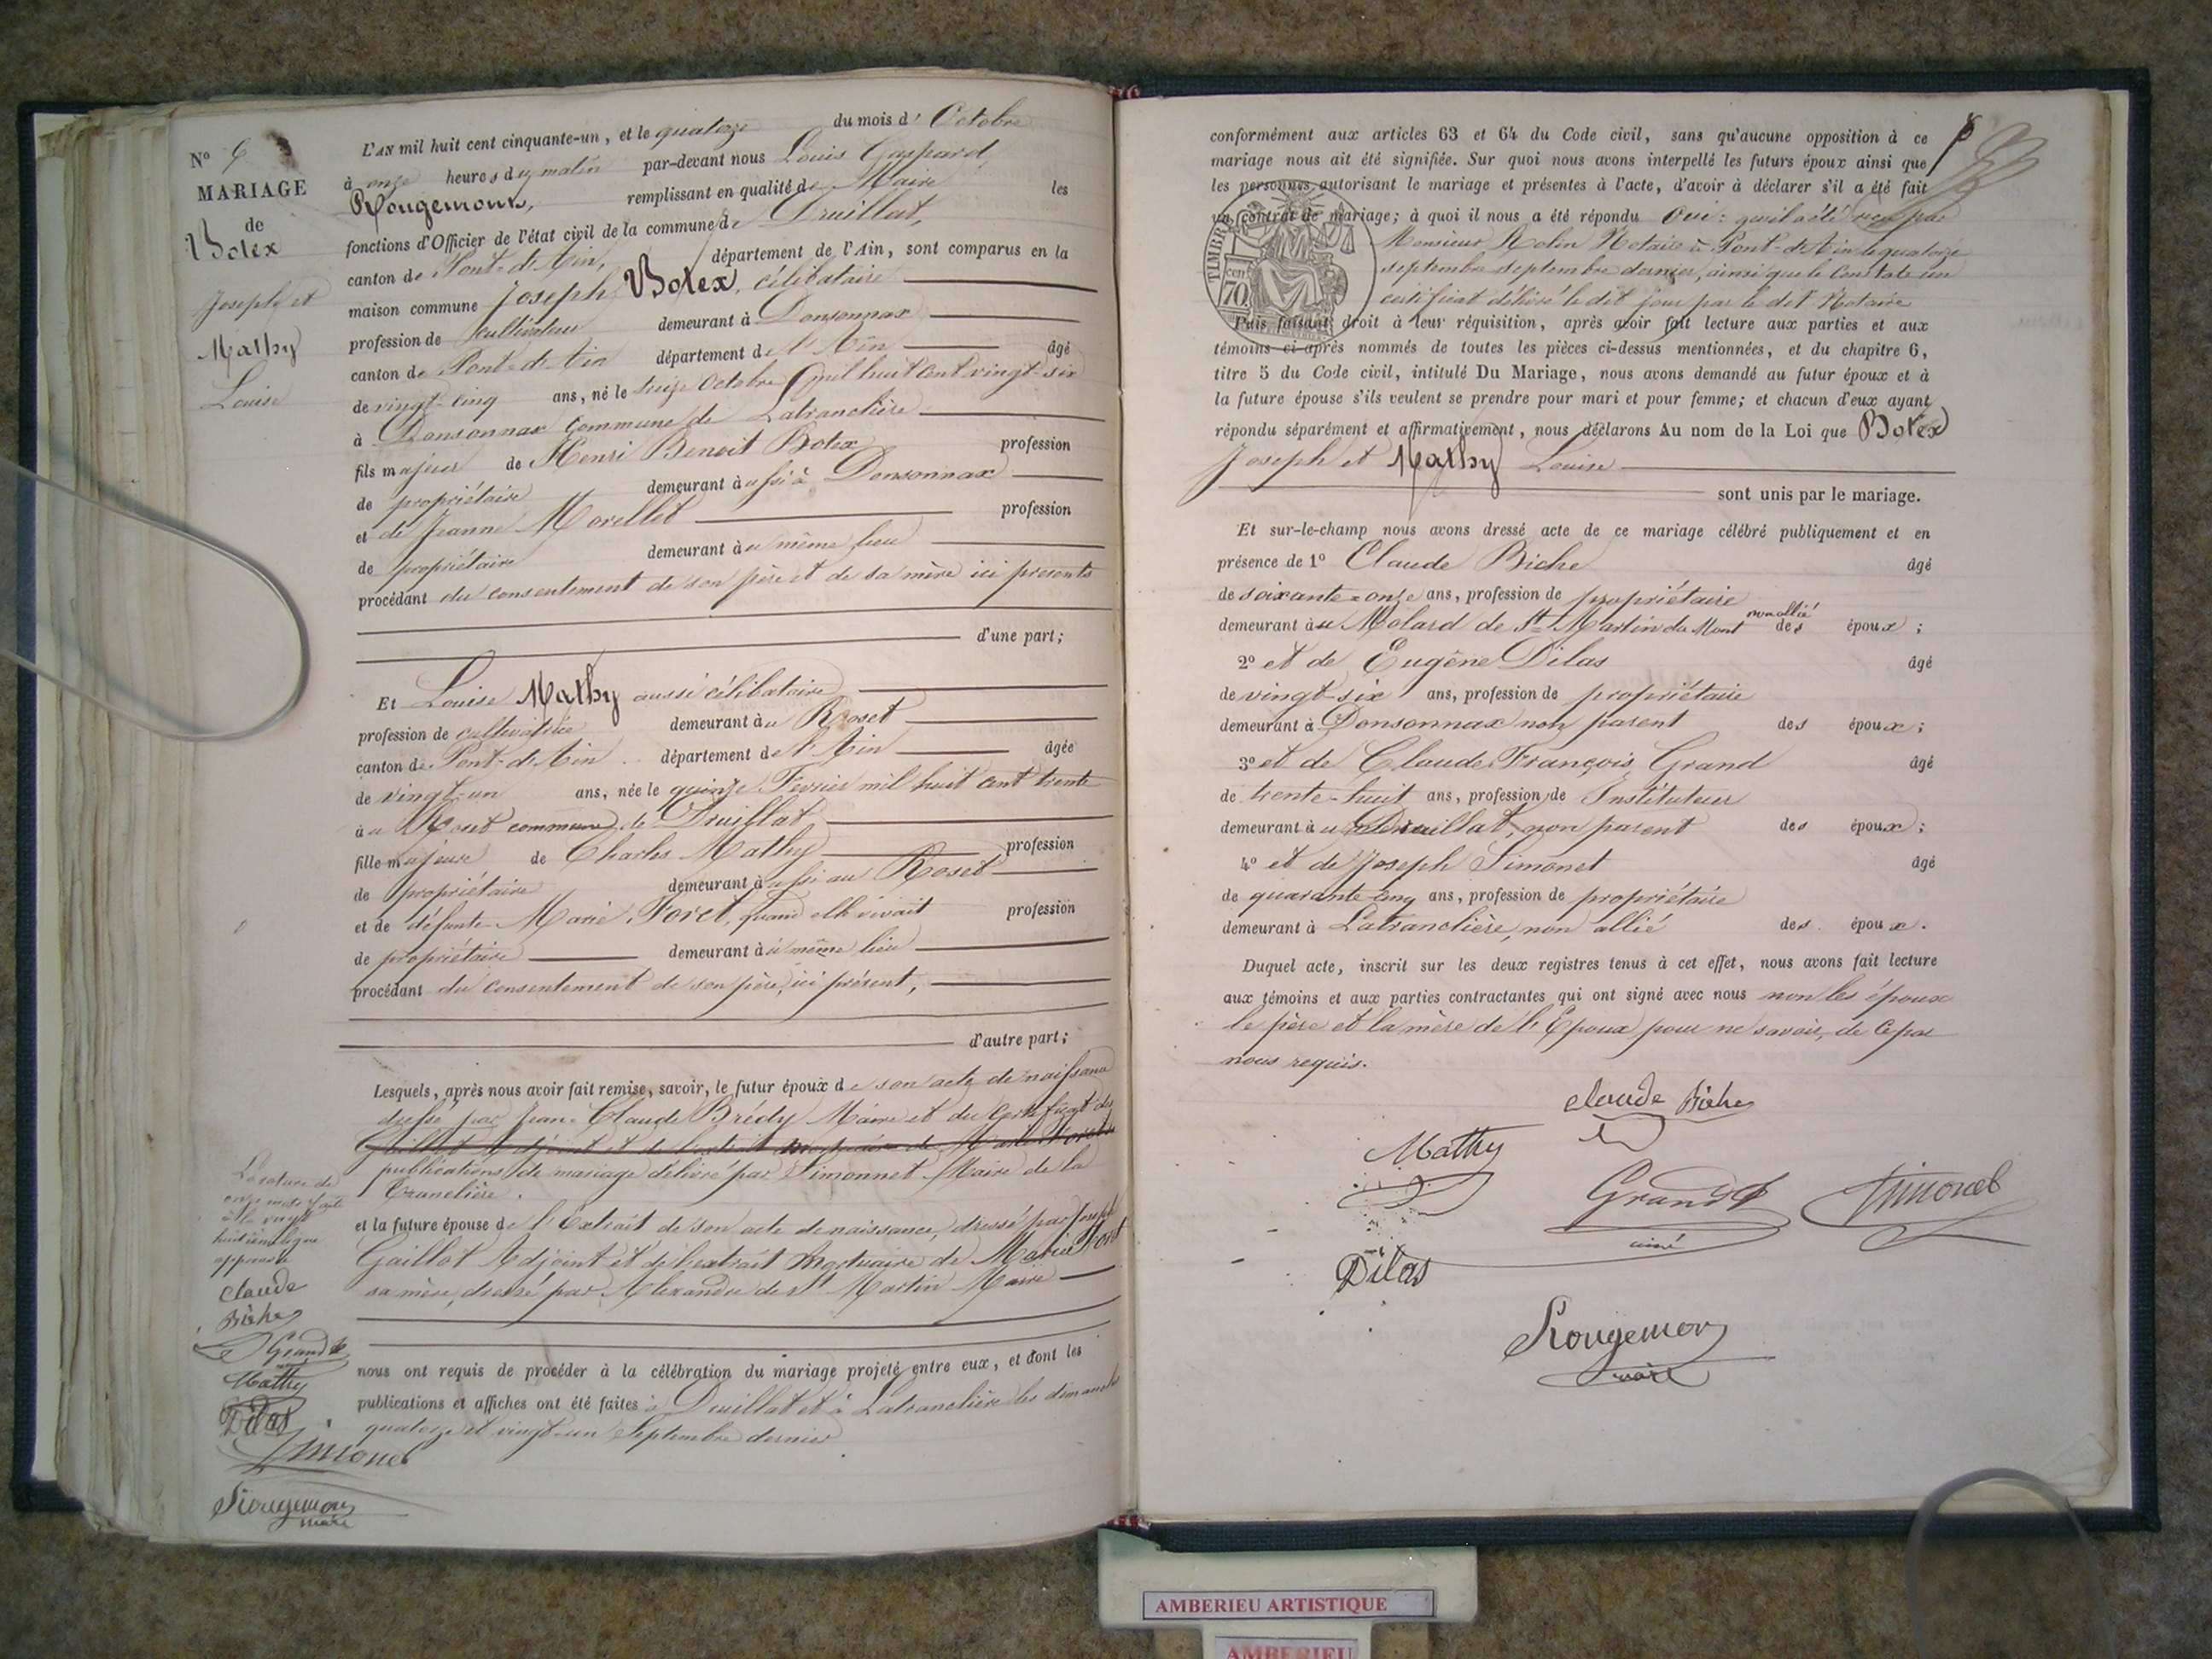 L'AN mil huit cent cinquante-un, et le quatorze du mois d'Octobre
à onze heures du matin par-devant nous Louis Gaspard
Rougemont, remplissant en qualité de Maire les
fonctions d'Officier de l'état civil de la commune de Druillat,
canton de Pont-d'Ain, département de l'Ain, sont comparus en la
maison commune Joseph Botex, célibataire
profession de cultivateur demeurant à Donsonnax
canton de Pont-d'Ain département de l'Ain âgé
de vingt-cinq ans, né le Octobre mil huit cent vingt-six
à Donsonnax Commune de Latranclière
fils majeur de Henri Benoit Botex profession
de propriétaire demeurant aussi à Donsonnax
et de Jeanne Morellet profession
de propriétaire demeurant au même lieu
procédant du consentement de son père et de sa mère ici présents
d'une part;
Et Louise Mathy aussi célibataire
profession de cultivatrice demeurant au Roset
canton de Pont-d'Ain département de l'Ain âgée
de vingt-un ans, née le quinze Fevrier mil huit cent trente
au Roset commune de Druillat
fille majeure de Charles Mathy profession
de propriétaire demeurant aussi au Roset
et de défunte Marie Foret, quand elle vivait profession
de propriétaire demeurant au même lieu
procédant du consentement de son père, ici présent,
d'autre part;
Lesquels, après nous avoir fait remise, savoir, le futur époux de son acte de naissance
dressé par Jean-Claude Brédy Maire et du certificat des
Gaillot Adjoint et de l'extrait mortuaire de Marie Foret
publications de mariage délivré par Simonnet Maire de la
Tranclière.
et la future épouse de l'Extrait de son acte de naissance, dressé par Joseph
Gaillot Adjoint et de l'extrait mortuaire de Marie Foret
sa mère, dressé par Alexandre de St Martin Maire
nous ont requis de procéder à la célébration du mariage projeté entre eux, et dont les
publications et affiches ont été faites à Druillat et à Latranclière les dimanches
quatorze et vingt-un Septembre dernier
N° 
MARIAGE
de
Botex
Joseph et
Mathy
Louise
La rature de
onze mots faite
à la vingt
huitième ligne
approuvée
Claude
Biche
Grand
Mathy
Dilas
Simonet
Rougemont
maire
conformément aux articles 63 et 64 du Code civil, sans qu'aucune opposition à ce
mariage nous ait été signifiée. Sur quoi nous avons interpellé les futurs époux ainsi que
les personnes autorisant le mariage et présentes à l'acte, d'avoir à déclarer s'il a été fait
un contrat de mariage; à quoi il nous a été répondu Oui: qu'il a été reçu par
Monsieur Rolin Notaire à Pont-d'Ain le quatorze
septembre septembre dernier, ainsi que le constate un
certificat délivré le dit jour par le dit Notaire
TIMBRE
cent
70
Puis faisant droit à leur réquisition, après avoir fait lecture aux parties et aux
témoins ci-après nommés de toutes les pièces ci-dessus mentionnées, et du chapitre 6,
titre 5 du Code civil, intitulé Du Mariage, nous avons demandé au futur époux et à
la future épouse s'ils veulent se prendre pour mari et pour femme; et chacun d'eux ayant
répondu séparément et affirmativement, nous déclarons Au nom de la Loi que Botex
Joseph et Mathy Louise
sont unis par le mariage.
Et sur-le-champ nous avons dressé acte de ce mariage célébré publiquement et en
présence de 1° Claude Biche âgé
de soixante-onze ans, profession de propriétaire
demeurant au Molard de St Martin du Mont non allié des époux;
2° et de Eugène Dilas âgé
de vingt-six ans, profession de propriétaire
demeurant à Donsonnax non parent des époux;
3° et de Claude François Grand âgé
de trente-huit ans, profession de Instituteur
demeurant à Druillat, non parent des époux;
4° et de Joseph Simonet âgé
de quarante-cinq ans, profession de propriétaire
demeurant à Latranclière, non allié des époux.
Duquel acte, inscrit sur les deux registres tenus à cet effet, nous avons fait lecture
aux témoins et aux parties contractantes qui ont signé avec nous non les époux
le père et la mère de l'Epoux pour ne savoir, de ce par
nous requis.
Claude Biche
Mathy
Grand
Simonet
Dilas
Rougemont
maire
AMBERIEU ARTISTIQUE
AMBERIEU